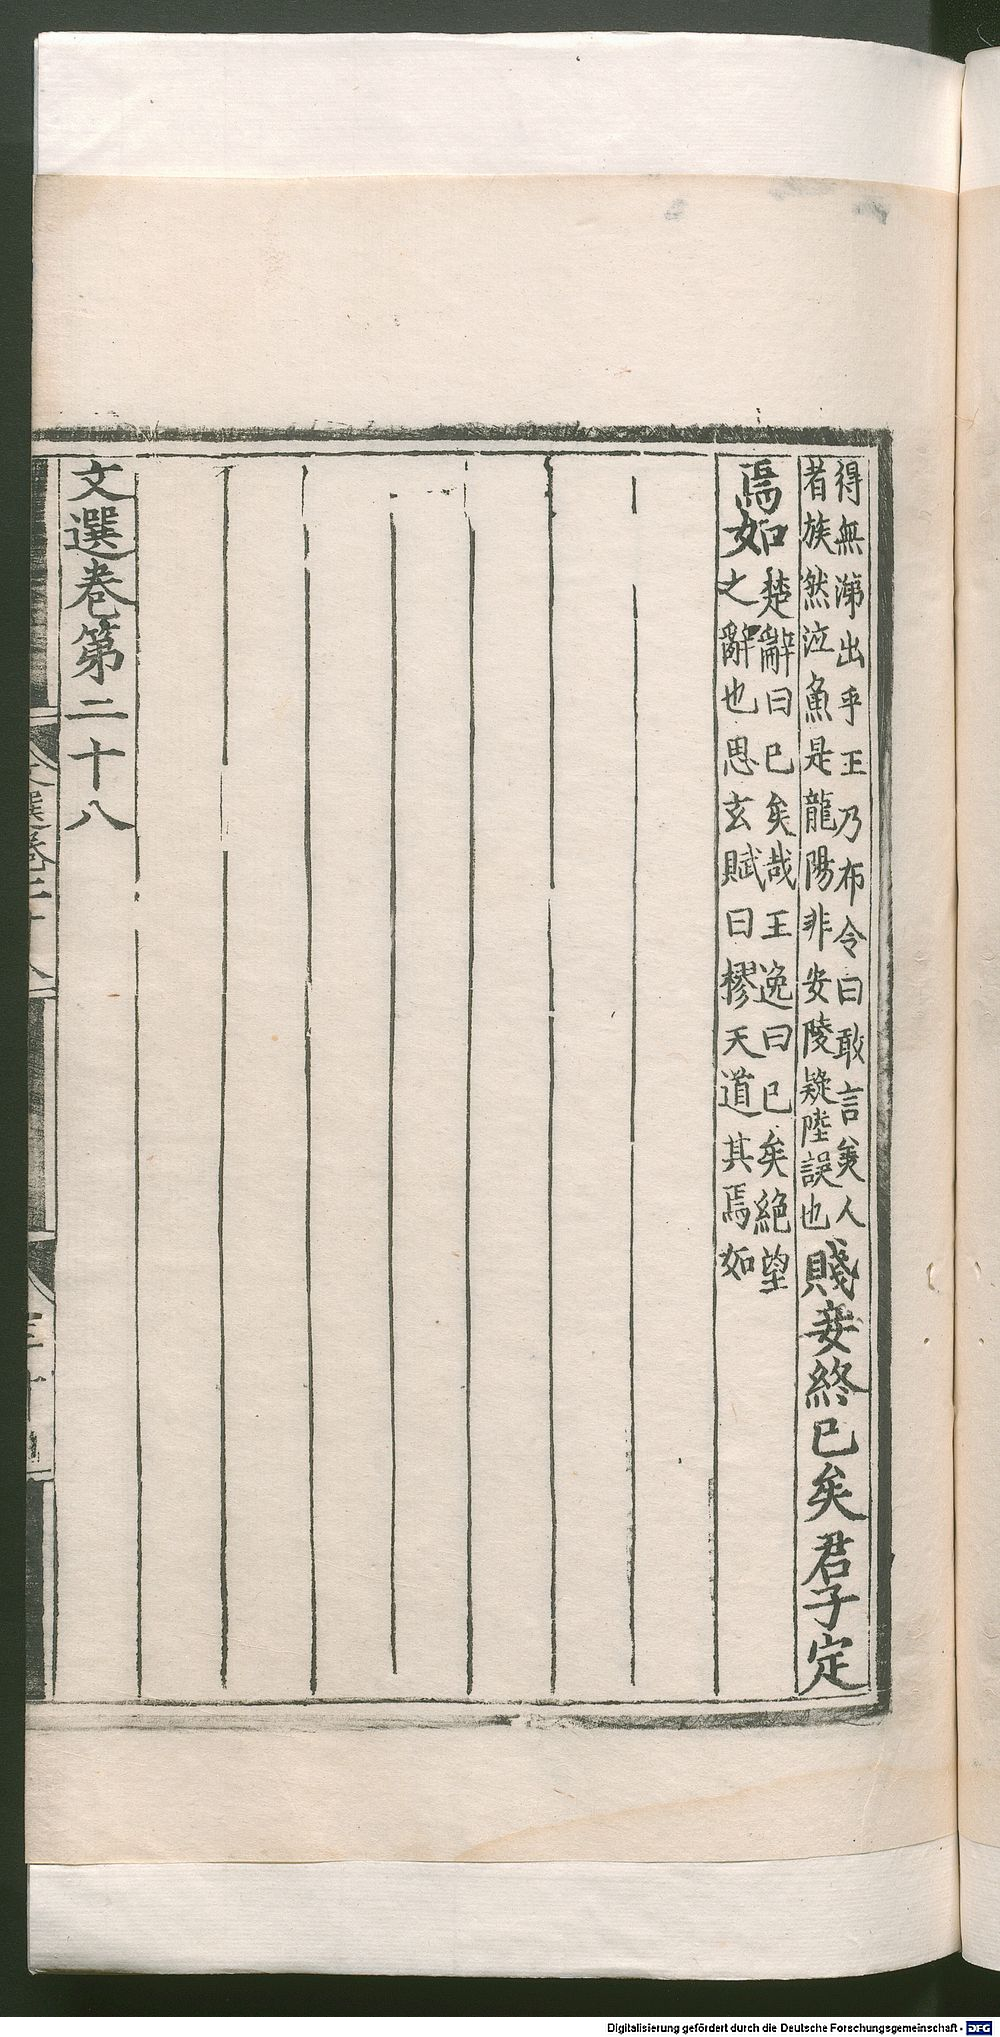 得無涕出乎王乃布令曰敢言美人
者族然泣魚是龍陽非安陵疑陸誤也
賤妾終已矣君子定
焉如
楚辭曰已矣哉王逸曰已矣絕望
之辭也思玄賦曰樛天道其焉如
文選卷第二十八
文選卷二十八
Digitalisierung gefördert durch die Deutsche Forschungsgemeinschaft - DFG